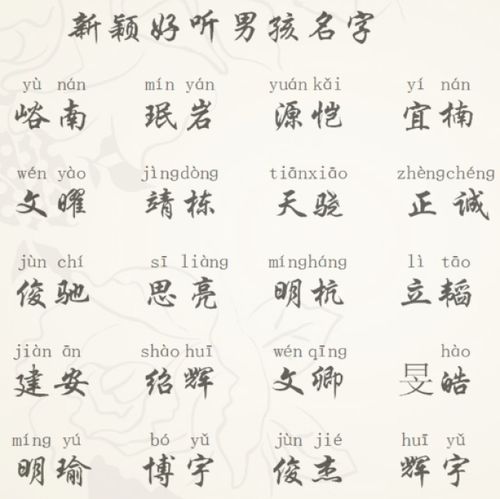 新颖好听男孩名字
yù nán mín yán yuán kǎi yí nán
峪南 珉岩 源恺 宜楠
wén yào jìngdòng tiānxiāo zhèngchéng
文曜 靖栋 天骁 正诚
jùn chí sī liàng mínghángg lì tāo
俊驰 思亮 明杭 立韬
jiàn ān shào huī wén qīng hào
建安 绍辉 文卿 旻皓
míng yú bó yǔ jùn jié huī yǔ
明瑜 博宇 俊杰 辉宇